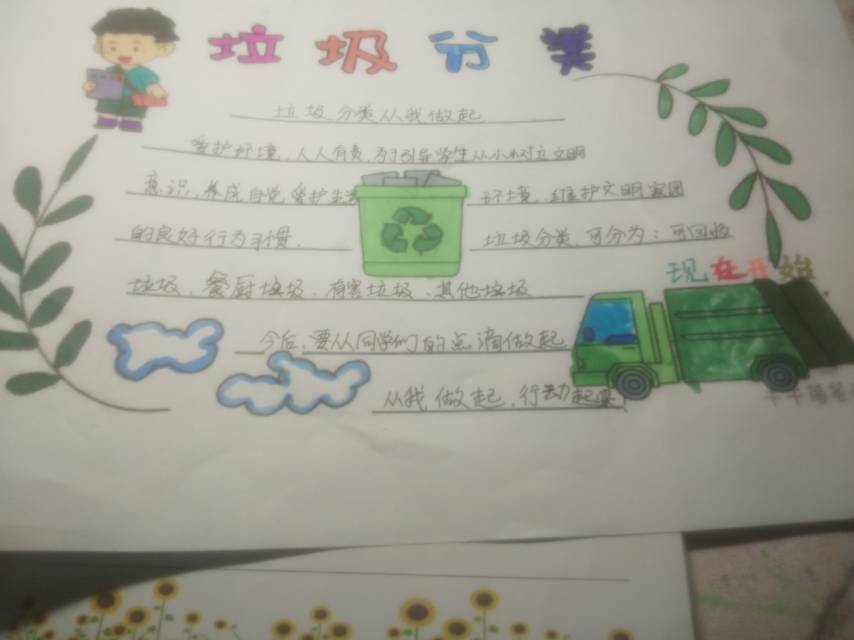 垃圾分类
垃圾分类从我做起
爱护环境,人人有责,为了引导学生从小树立文明
意识,养成自觉爱护生活环境,维护文明家园
的良好行为习惯. 垃圾分类,可分为:可回收
现在开始
垃圾、餐厨垃圾、有害垃圾、其他垃圾
今后,要从同学们的点滴做起
从我做起,行动起来